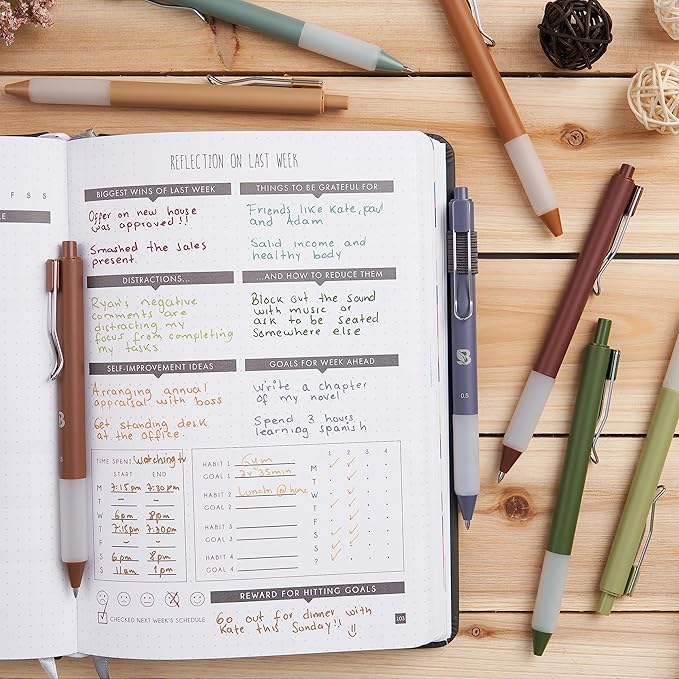 F S S
LE
REFLECTION ON LAST WEEK
BIGGEST WINS OF LAST WEEK
Offer on new house
was approved!!
Smashed the sales
present.
THINGS TO BE GRATEFUL FOR
Friends like Kate, paul
and Adam
Salid income and
healthy body
DISTRACTIONS...
Ryan's negative
comments are
distracting my
focus from completing
my tasks.
...AND HOW TO REDUCE THEM
Block out the sound
with music or
ask to be seated
Somewhere else
SELF-IMPROVEMENT IDEAS
Arranging annual
appraisal with boss
Get standing desk
at the office.
GOALS FOR WEEK AHEAD
Write a chapter
of my novel
Spend 3 hours
learning spanish
TIME SPENT watching tv
START END
M 7:15pm 7:30pm
T - -
W 6pm 8pm
T 7:15pm 7:30pm
F - -
S 6pm 8pm
S 11am 1pm
HABIT 1 Gym
GOAL 1 2x35min
HABIT 2 @ home
GOAL 2
HABIT 3
GOAL 3
HABIT 4
GOAL 4
1 2 3 4
M
T
W
T
F
S
S
?
CHECKED NEXT WEEK'S SCHEDULE
REWARD FOR HITTING GOALS
Go out for dinner with
Kate this Sunday!!
103
B
0.5
B
0.5